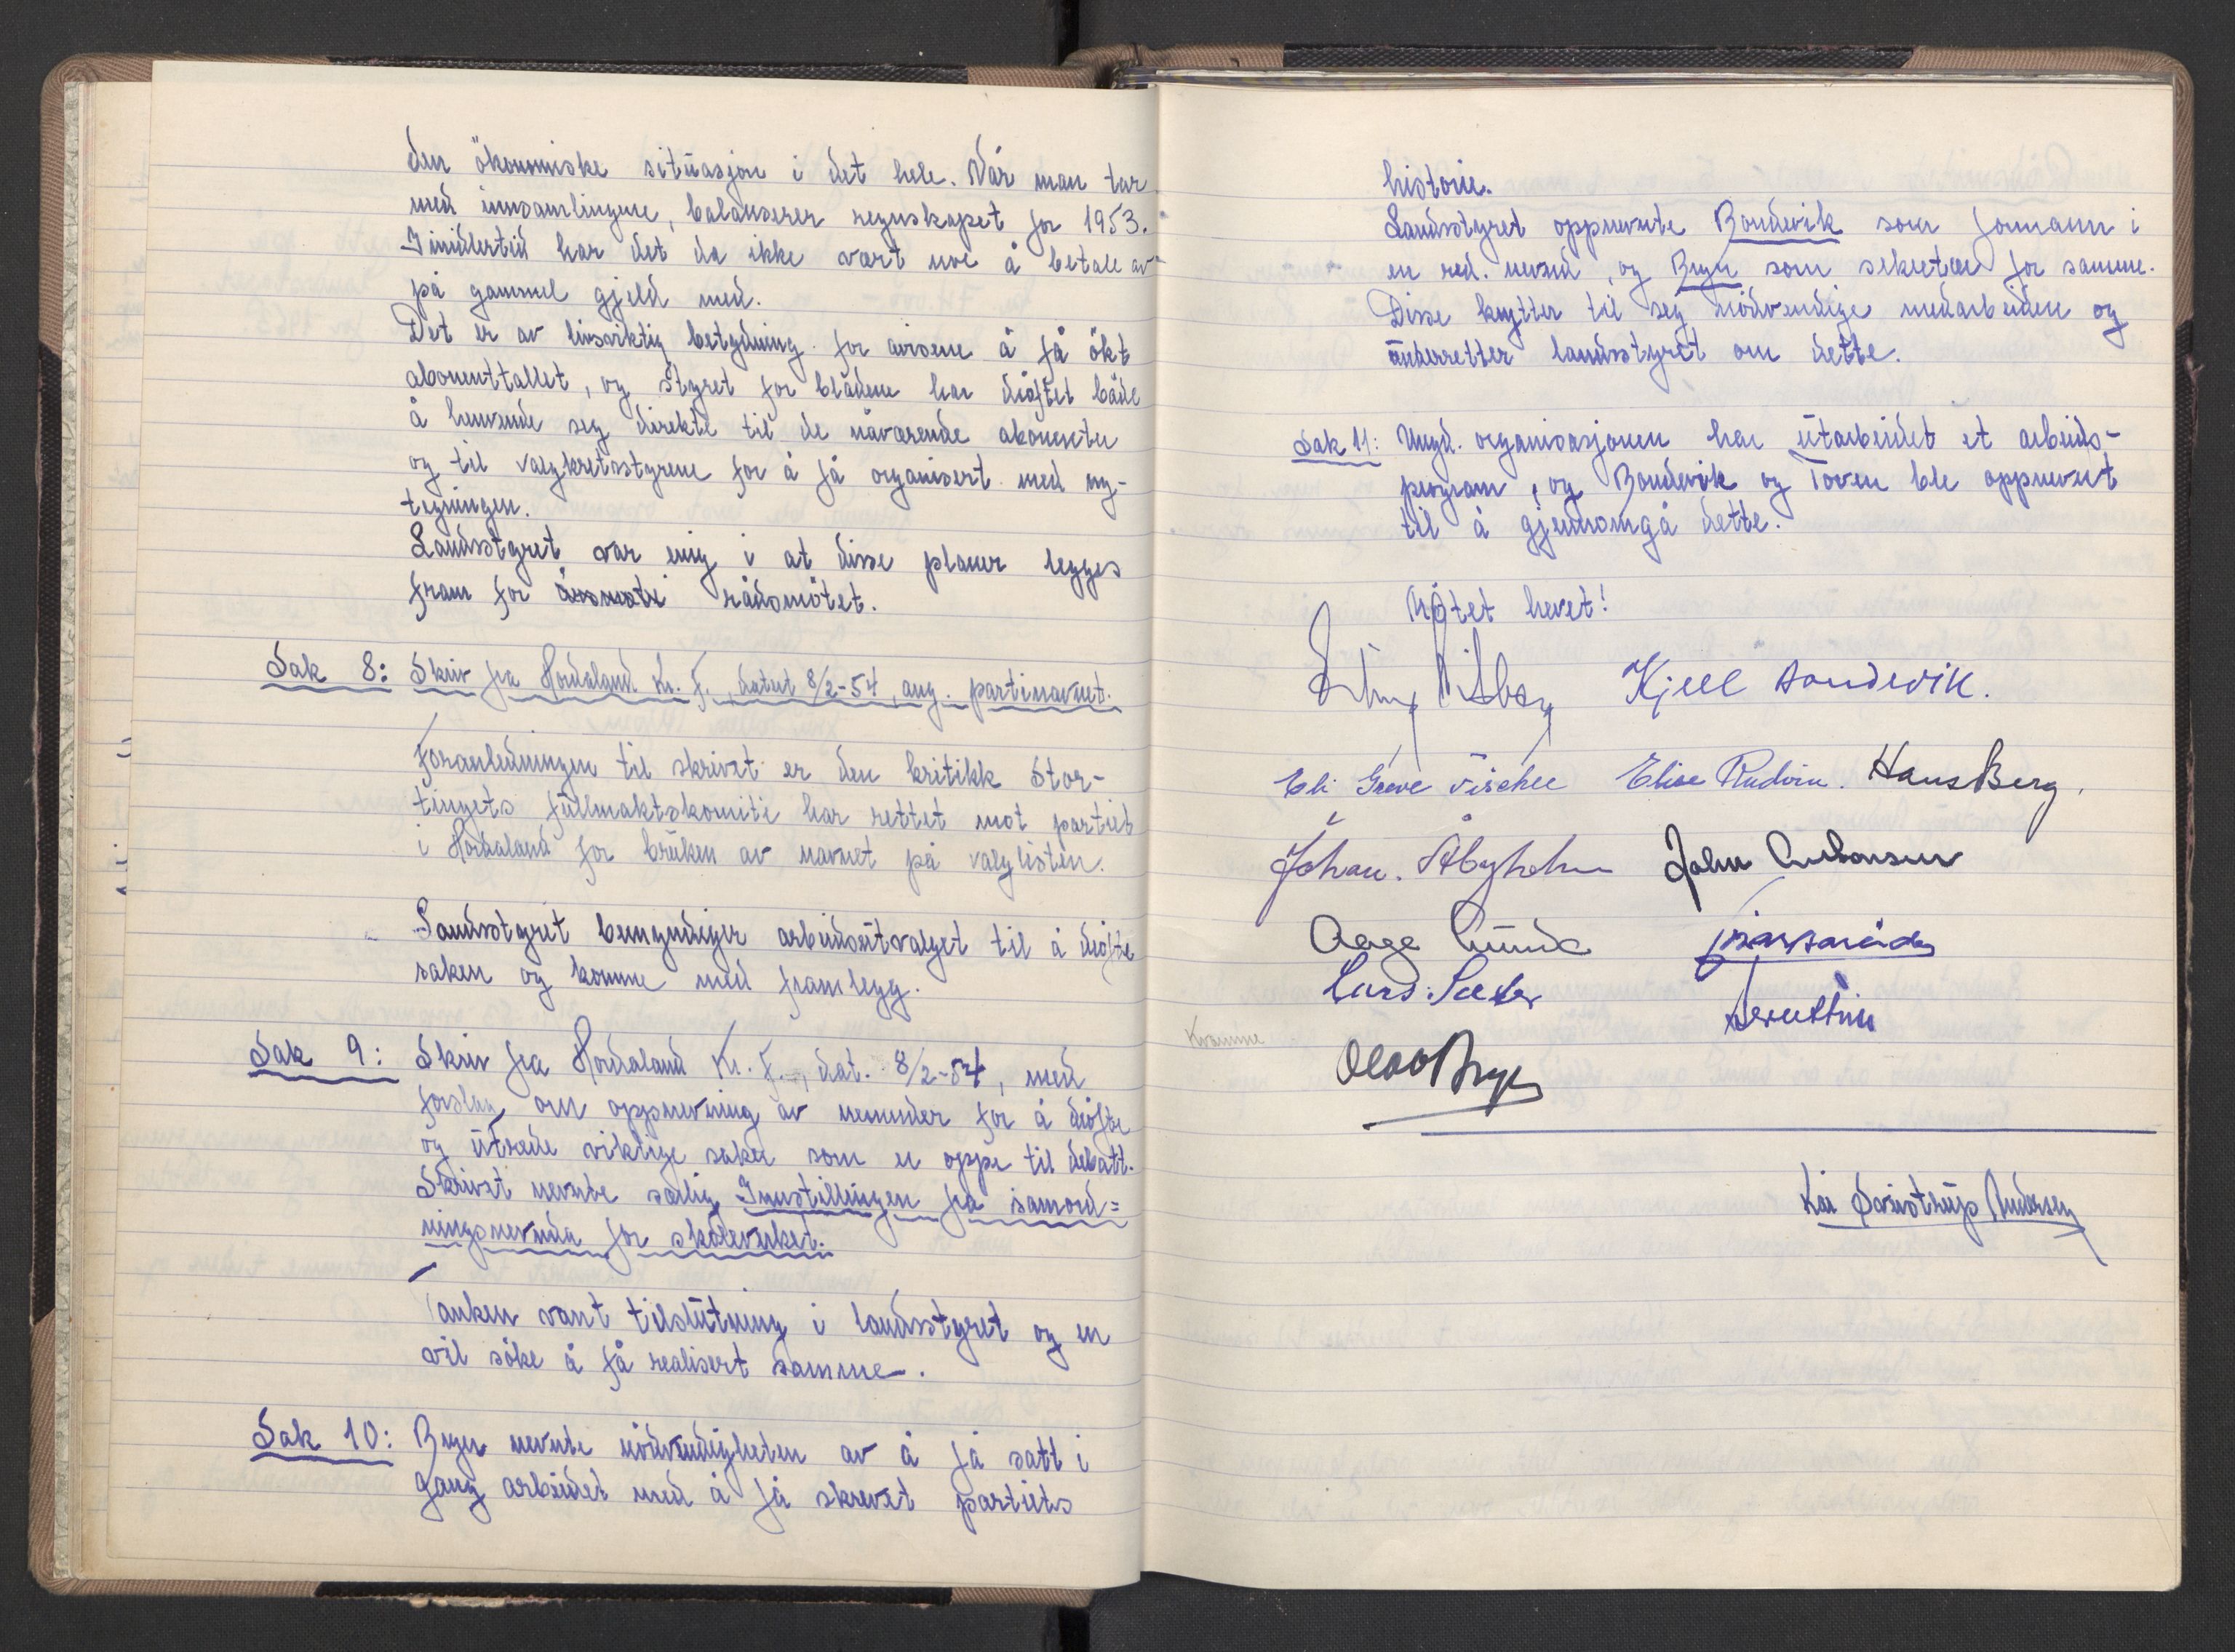 den ökonomiske situasjon i det hele. Når man tar
med innsamlingene, balanserer regnskapet for 1953.
Imidlertid har det da ikke vært noe å betale av
på gammel gjeld med.
Det er av livsviktig betydning for avisene å få ökt
abonenttallet, og styret for bladene har dröftet både
å henvende seg direkte til de nåværende abonenter
og til valgkretsstyrene for å få organisert med ny-
tegningen.
Landsstyret var enig i at disse planer legges
fram for rådsmötet.
Sak 8: Skriv fra Hordaland Kr. F., datert 8/2-54, ang. partinavnet.
Foranledningen til skrivet er den kritikk Stor-
tingets fullmaktskomite har rettet mot partiet
i Hordaland for bruken av navnet på valglisten.
Landsstyret bemyndiger arbeidsutvalget til å dröfte
saken og komme med framlegg.
Sak 9: Skriv fra Hordaland Kr. F., dat. 8/2-54, med
forslag om oppnevning av nemnder for å dröfte
og utrede viktige saker som er oppe til debatt.
Skrivet nevnte særlig Innstillingen fra samord=
ningsnevnda for skoleverket.
Tanken vant tilslutning i landsstyret og en
vil söke å få realisert samme.
Sak 10: Bryn nevnte nödvendigheten av å få satt i
gang arbeidet med å få skrevet partiets
historie.
Landsstyret oppnevnte Bondevik som formann i
en red. nevnd, og Bryn som sekretær for samme.
Disse knytter til seg nödvendige medarbeidere og
underretter landsstyret om dette.
Sak 11: Ungd. organisasjonen har utarbeidet et arbeids-
program, og Bondevik og Toven ble oppnevnt
til å gjennomgå dette.
Mötet hevet!
Kjell Bondevik.
Eli Greve Elise Rudvin. Hans Berg.
Johan. Åbyholm John
Aage
Lars. Sæter
Kvamme
Olav Bryn
Kai Andersen